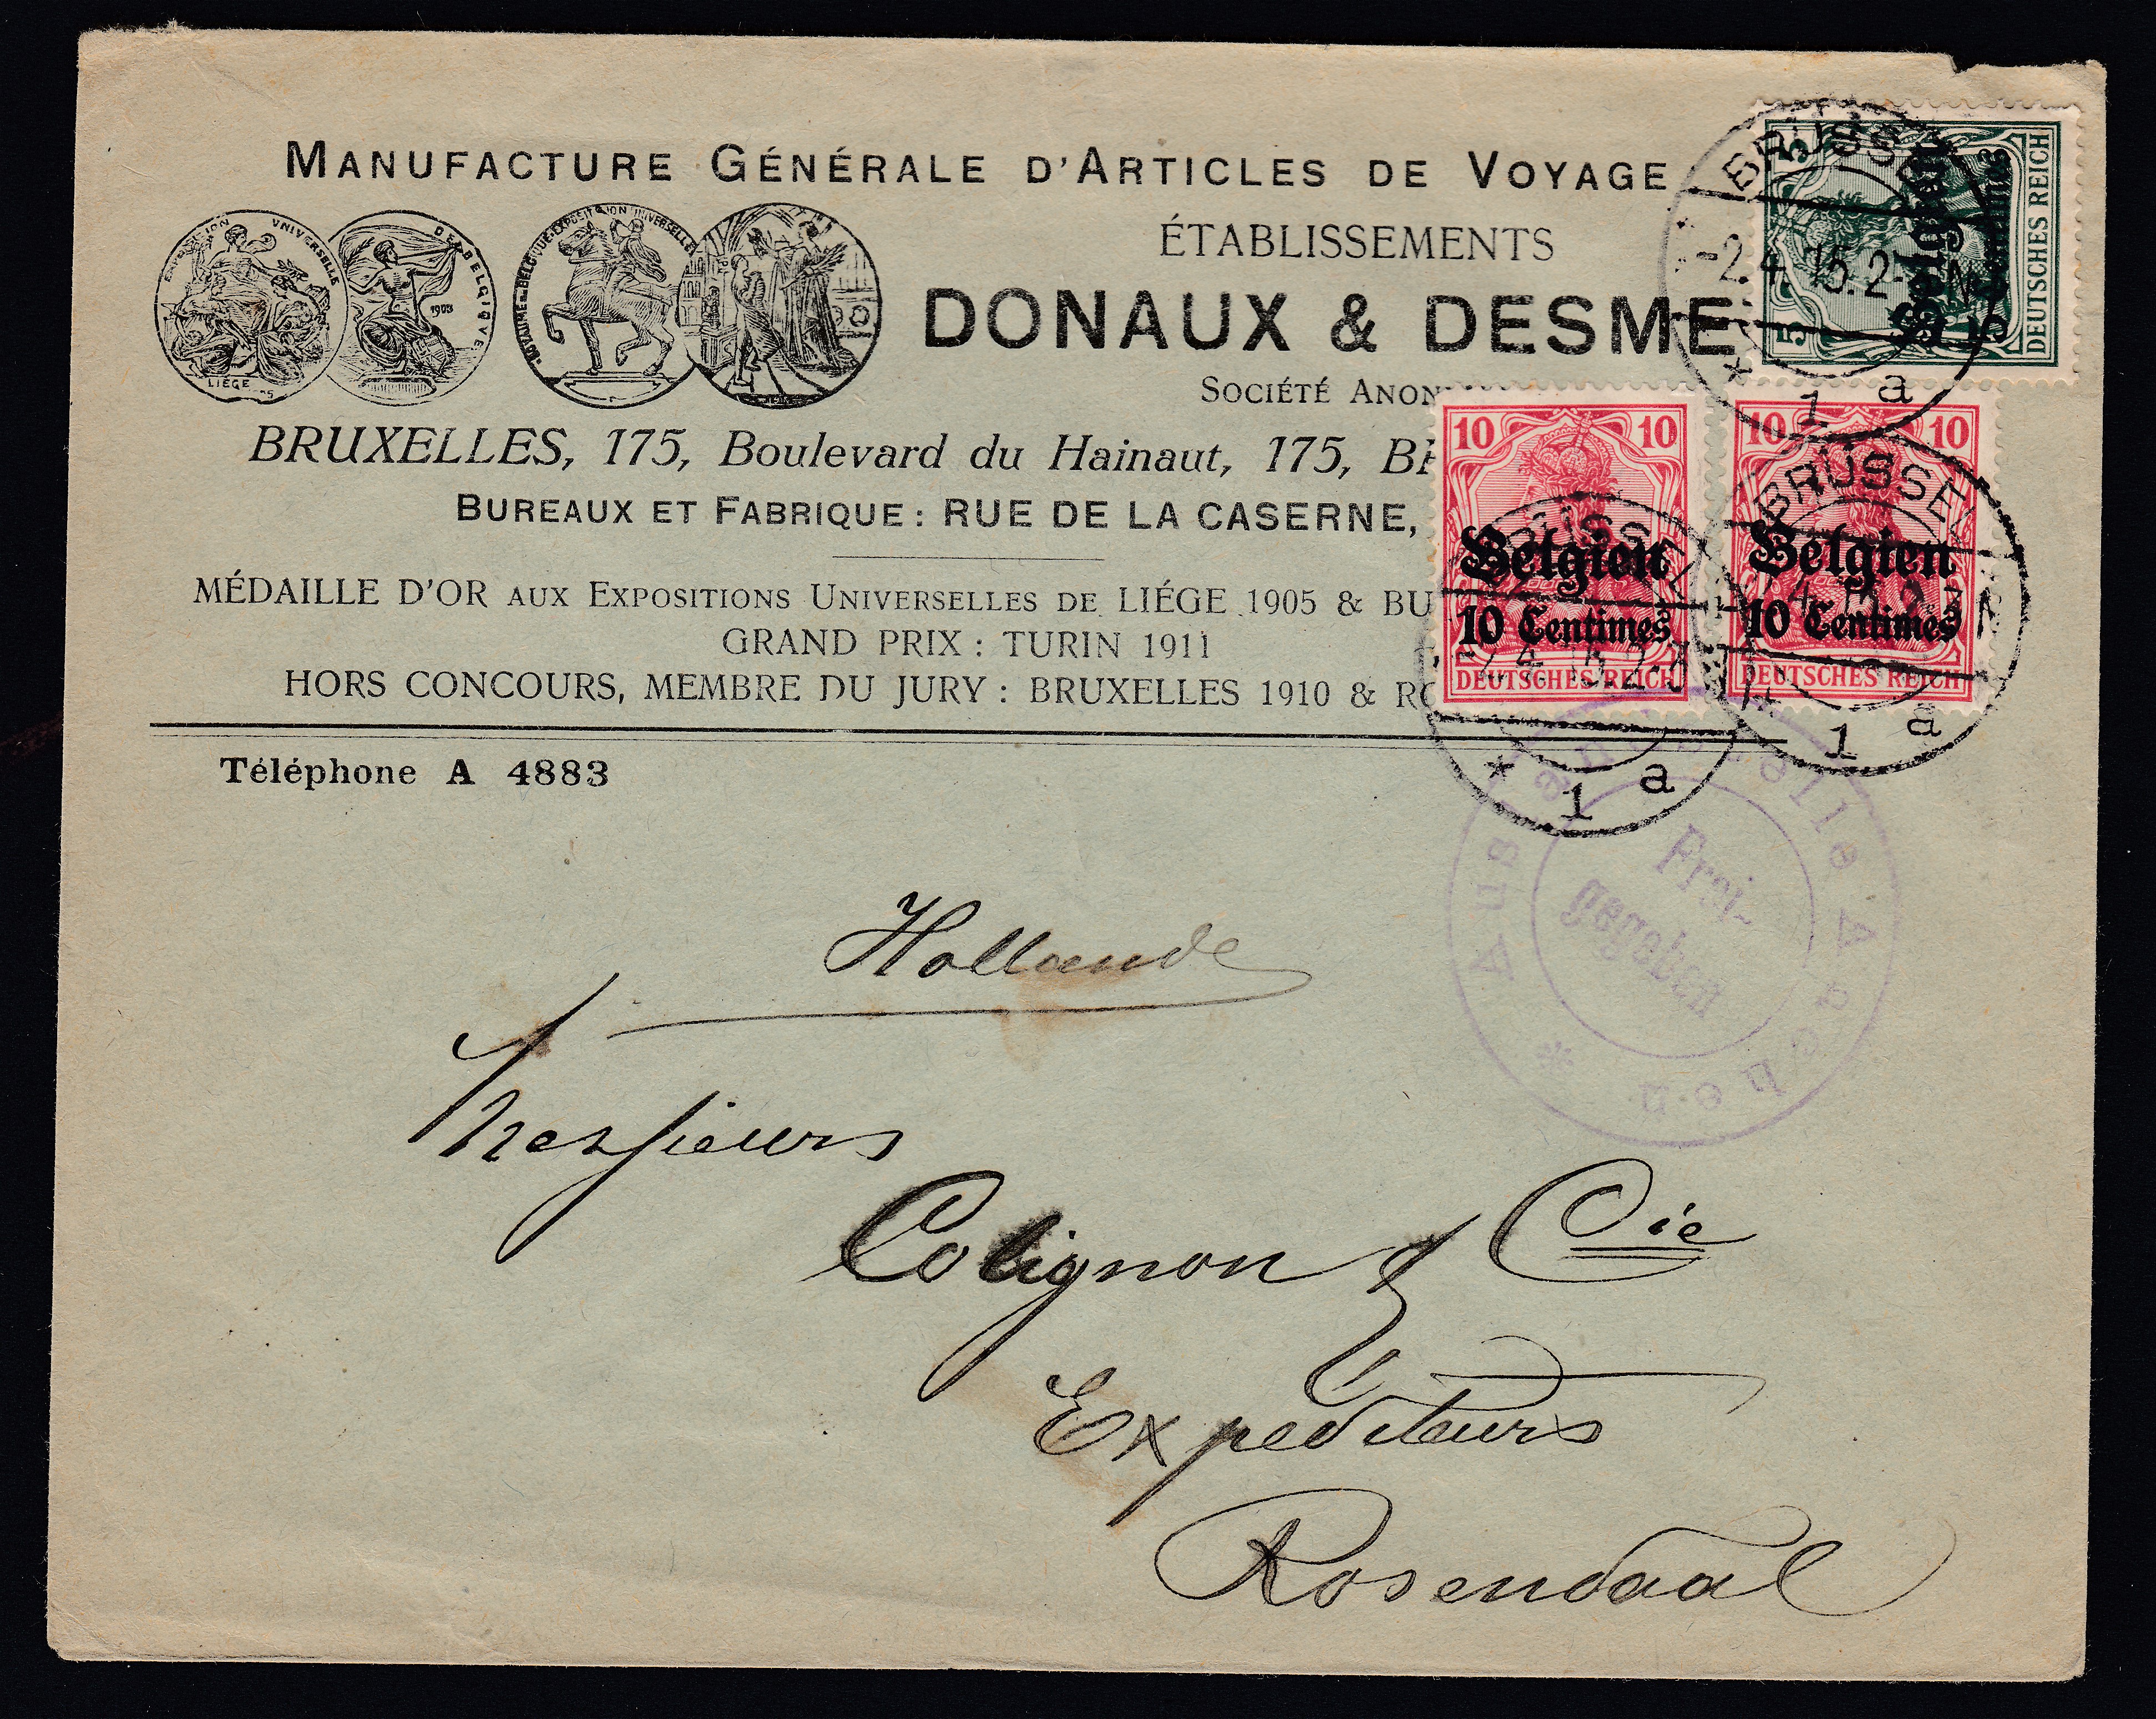 MANUFACTURE GÉNÉRALE D'ARTICLES DE VOYAGE
ÉTABLISSEMENTS
DONAUX & DESME
SOCIÉTÉ ANON
BRUXELLES, 175, Boulevard du Hainaut, 175, BR
BUREAUX ET FABRIQUE : RUE DE LA CASERNE,
MÉDAILLE D'OR AUX EXPOSITIONS UNIVERSELLES DE LIÉGE 1905 & BU
GRAND PRIX : TURIN 1911
HORS CONCOURS, MEMBRE DU JURY : BRUXELLES 1910 & RO
Téléphone A 4883
UNIVERSELLE
LIÉGE
DE BELGIQVE
1905
ROYAUME DE BELGIQUE EXPOSITION UNIVERSELLE
5 5
DEUTSCHES REICH
Belgien
5 Centimes
10 10
Belgien
10 Centimes
DEUTSCHES REICH
10 10
Belgien
10 Centimes
DEUTSCHES REICH
BRÜSSEL
-2.4.15.2-3N
* 1 a
BRÜSSEL
-2.4.15.2-3N
* 1 a
BRÜSSEL
-2.4.15.2-3N
1 a
Auslandstelle Aachen
Frei-
gegeben
Hollande
Messieurs
Colignon & Cie
Expediteurs
Rosendaal